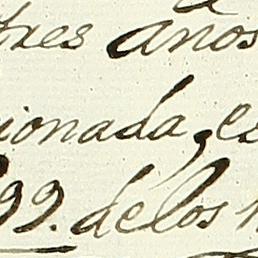 tres años
ionada, es
99. de los